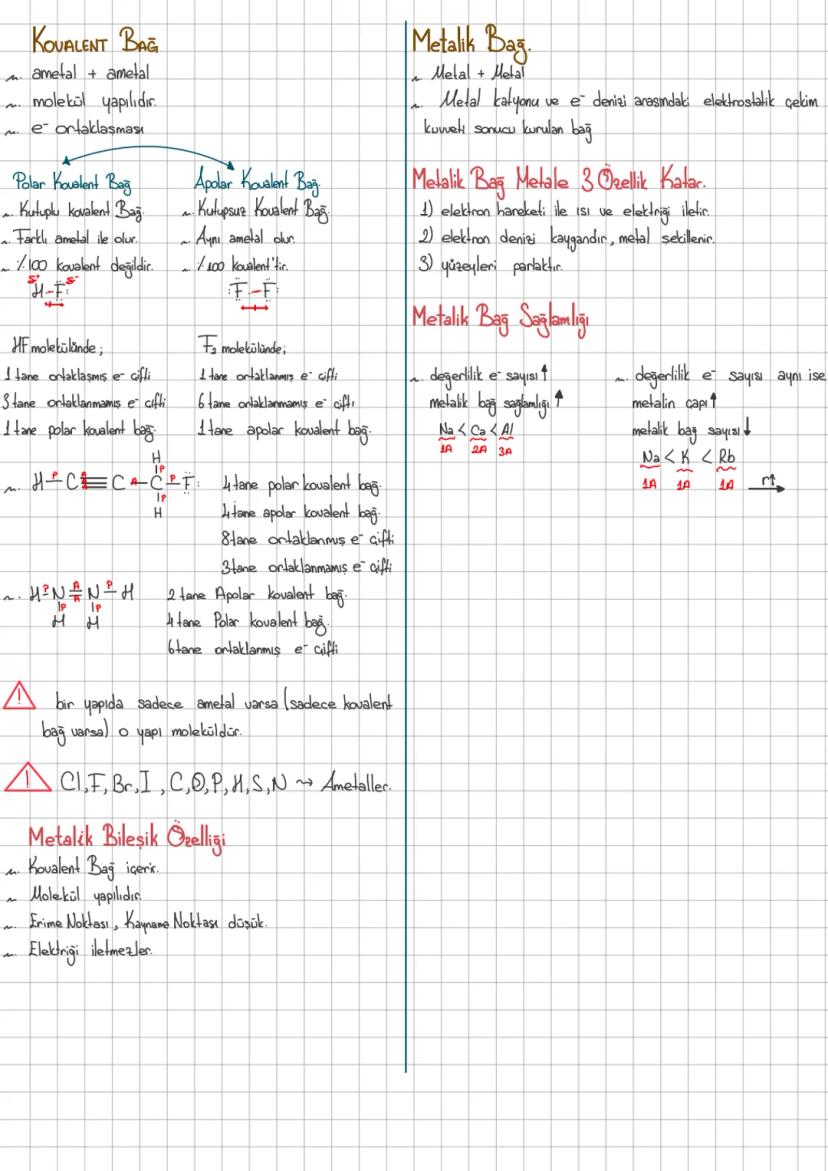 KOVALENT BAĞ
~. ametal + ametal
~. molekül yapılıdır.
~. e⁻ ortaklaşması
Polar Kovalent Bağ
~. Kutuplu kovalent Bağ.
~. Farklı ametal ile olur.
~. %100 kovalent değildir.
δ⁺ δ⁻
H-F:
HF molekülünde;
1 tane ortaklaşmış e⁻ çifti
3 tane ortaklanmamış e⁻ çifti
1 tane polar kovalent bağ.
Apolar Kovalent Bağ.
~. Kutupsuz Kovalent Bağ.
~. Aynı ametal olur.
~. %100 kovalent'tir.
:F-F:
F₂ molekülünde;
1 tane ortaklanmış e⁻ çifti
6 tane ortaklanmamış e⁻ çifti
1 tane apolar kovalent bağ.
H
P A A P P
~. H-C≡C-C-F:
P
H
4 tane polar kovalent bağ.
4 tane apolar kovalent bağ.
8 tane ortaklanmış e⁻ çifti
3 tane ortaklanmamış e⁻ çifti
P A P
~. H-N=N-H
A
P P
H H
2 tane Apolar kovalent bağ.
4 tane Polar kovalent bağ.
6 tane ortaklanmış e⁻ çifti
! bir yapıda sadece ametal varsa (sadece kovalent
bağ varsa) o yapı moleküldür.
! Cl,F,Br,I,C,O,P,H,S,N ⇝ Ametaller.
Metalik Bileşik Özelliği
~. Kovalent Bağ içerir.
~ Molekül yapılıdır.
~. Erime Noktası, Kaynama Noktası düşük.
~. Elektriği iletmezler.
Metalik Bağ.
~ Metal + Metal
~. Metal katyonu ve e⁻ denizi arasındaki elektrostatik çekim
kuvveti sonucu kurulan bağ
Metalik Bağ Metale 3 Özellik Katar.
1) elektron hareketi ile ısı ve elektriği iletir.
2) elektron denizi kaygandır, metal şekillenir.
3) yüzeyleri parlaktır.
Metalik Bağ Sağlamlığı
~. değerlilik e⁻ sayısı ↑
metalik bağ sağlamlığı ↑
Na < Ca < Al
1A 2A 3A
~. değerlilik e⁻ sayısı aynı ise
metalin çapı ↑
metalik bağ sayısı ↓
Na < K < Rb
1A 1A 1A r↑ →